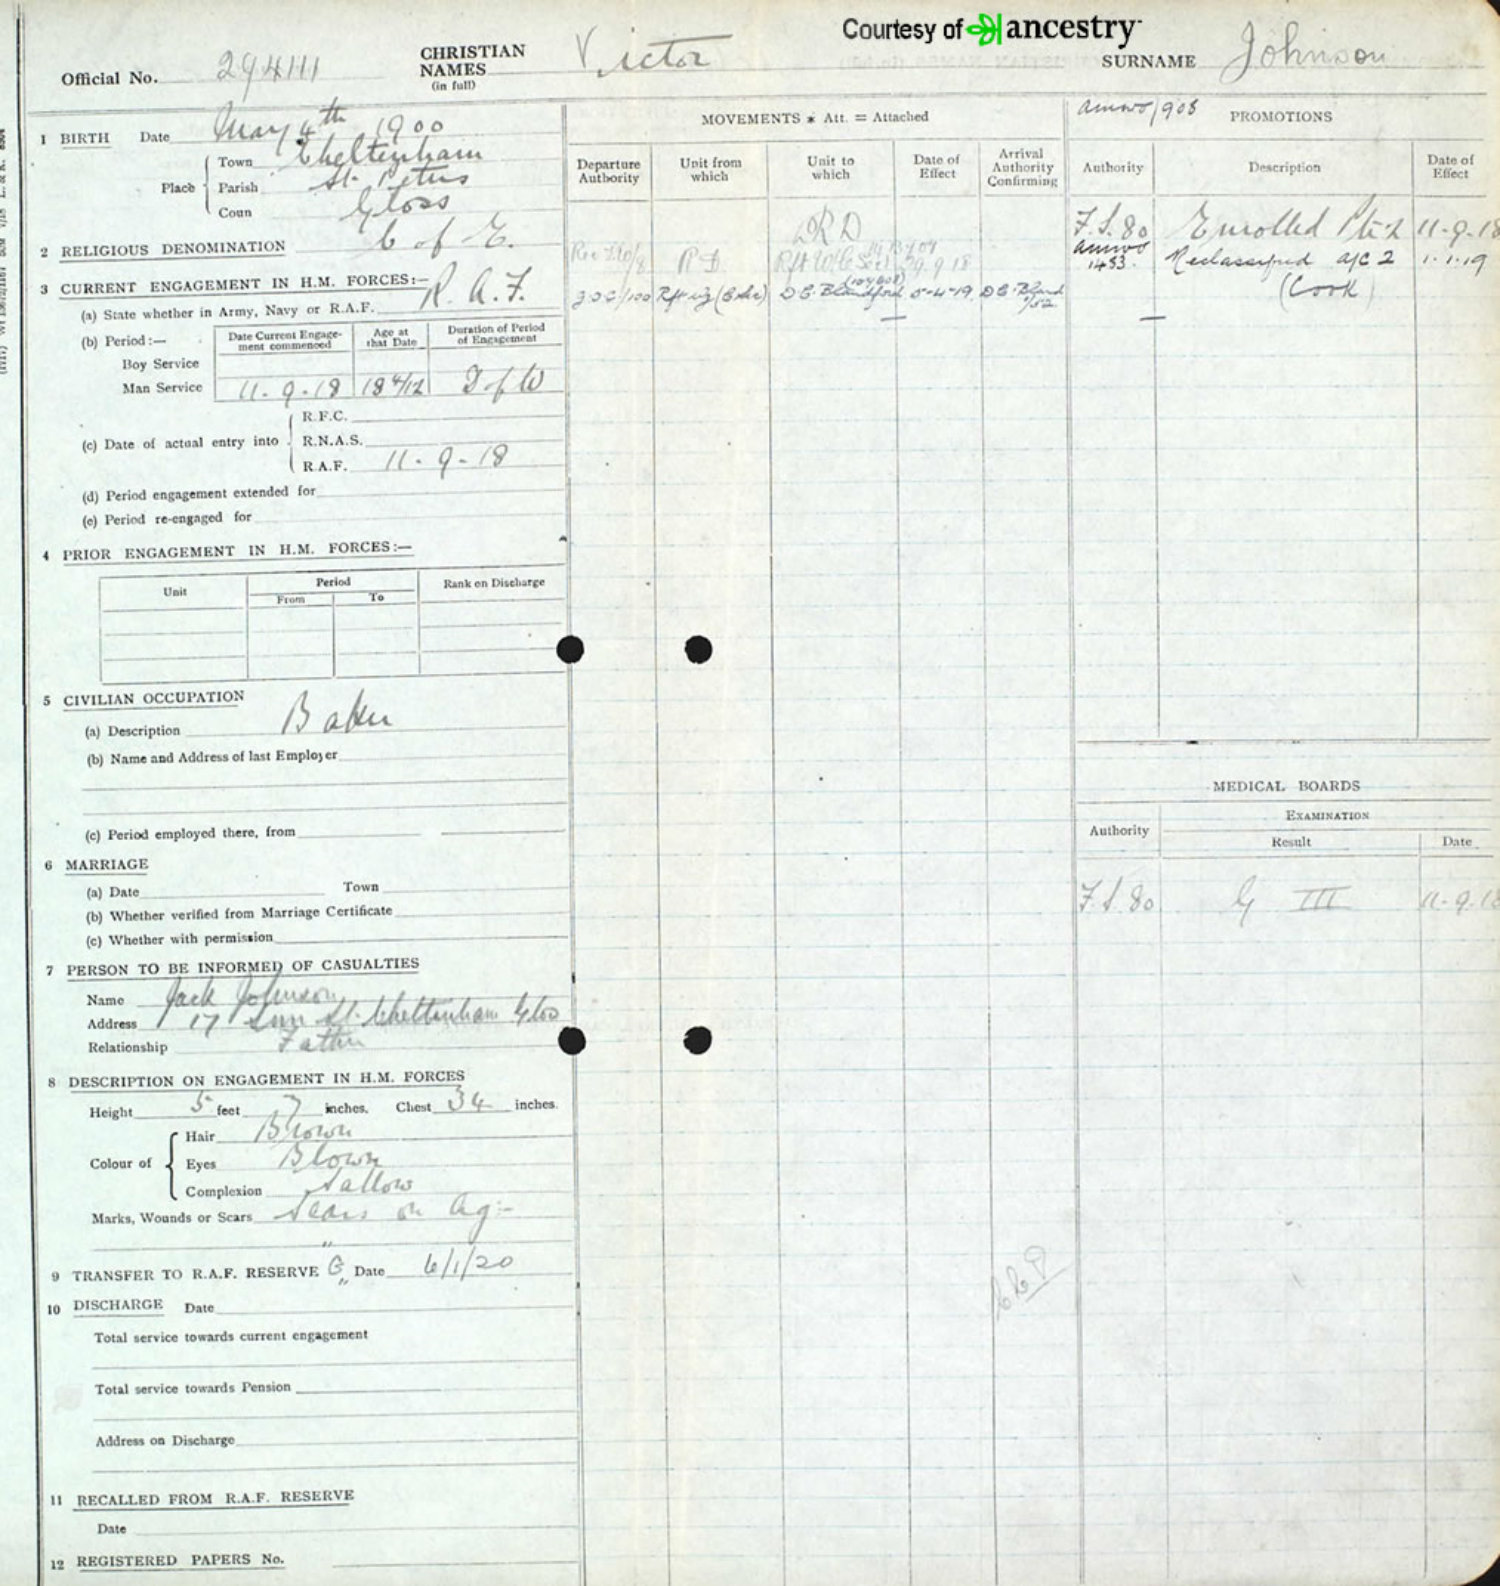 Courtesy of ancestry
Official No. 294111
CHRISTIAN NAMES (in full) Victor
SURNAME Johnson
1 BIRTH Date May 4th 1900
Place Town Cheltenham
Parish St. Peters
Coun Glos
2 RELIGIOUS DENOMINATION C of E.
3 CURRENT ENGAGEMENT IN H.M. FORCES:—
(a) State whether in Army, Navy or R.A.F. R.A.F.
(b) Period:—
Date Current Engagement commenced
Age at that Date
Duration of Period of Engagement
Boy Service
Man Service 11-9-18 18 4/12 D of W
(c) Date of actual entry into
R.F.C.
R.N.A.S.
R.A.F. 11-9-18
(d) Period engagement extended for
(e) Period re-engaged for
4 PRIOR ENGAGEMENT IN H.M. FORCES:—
Unit Period Rank on Discharge
From To
5 CIVILIAN OCCUPATION
(a) Description Baker
(b) Name and Address of last Employer
(c) Period employed there, from
6 MARRIAGE
(a) Date Town
(b) Whether verified from Marriage Certificate
(c) Whether with permission
7 PERSON TO BE INFORMED OF CASUALTIES
Name Jack Johnson
Address 17 St. Cheltenham Glos
Relationship Father
8 DESCRIPTION ON ENGAGEMENT IN H.M. FORCES
Height 5 feet 7 inches. Chest 34 inches.
Colour of
Hair Brown
Eyes Brown
Complexion Sallow
Marks, Wounds or Scars Scars on
9 TRANSFER TO R.A.F. RESERVE G Date 6/1/20
10 DISCHARGE Date
Total service towards current engagement
Total service towards Pension
Address on Discharge
11 RECALLED FROM R.A.F. RESERVE
Date
12 REGISTERED PAPERS No.
MOVEMENTS * Att. = Attached
Departure Authority
Unit from which
Unit to which
Date of Effect
Arrival Authority Confirming
R D
R D 29.9.18
DC. Blandford 5-4-19
amwo/908 PROMOTIONS
Authority Description Date of Effect
F.S.80 Enrolled Pte 2 11-9-18
amwo 1453. Reclassified a/c 2 1.1.19
(Cook)
MEDICAL BOARDS
Authority
EXAMINATION
Result Date
F.S.80 G III 11.9.18